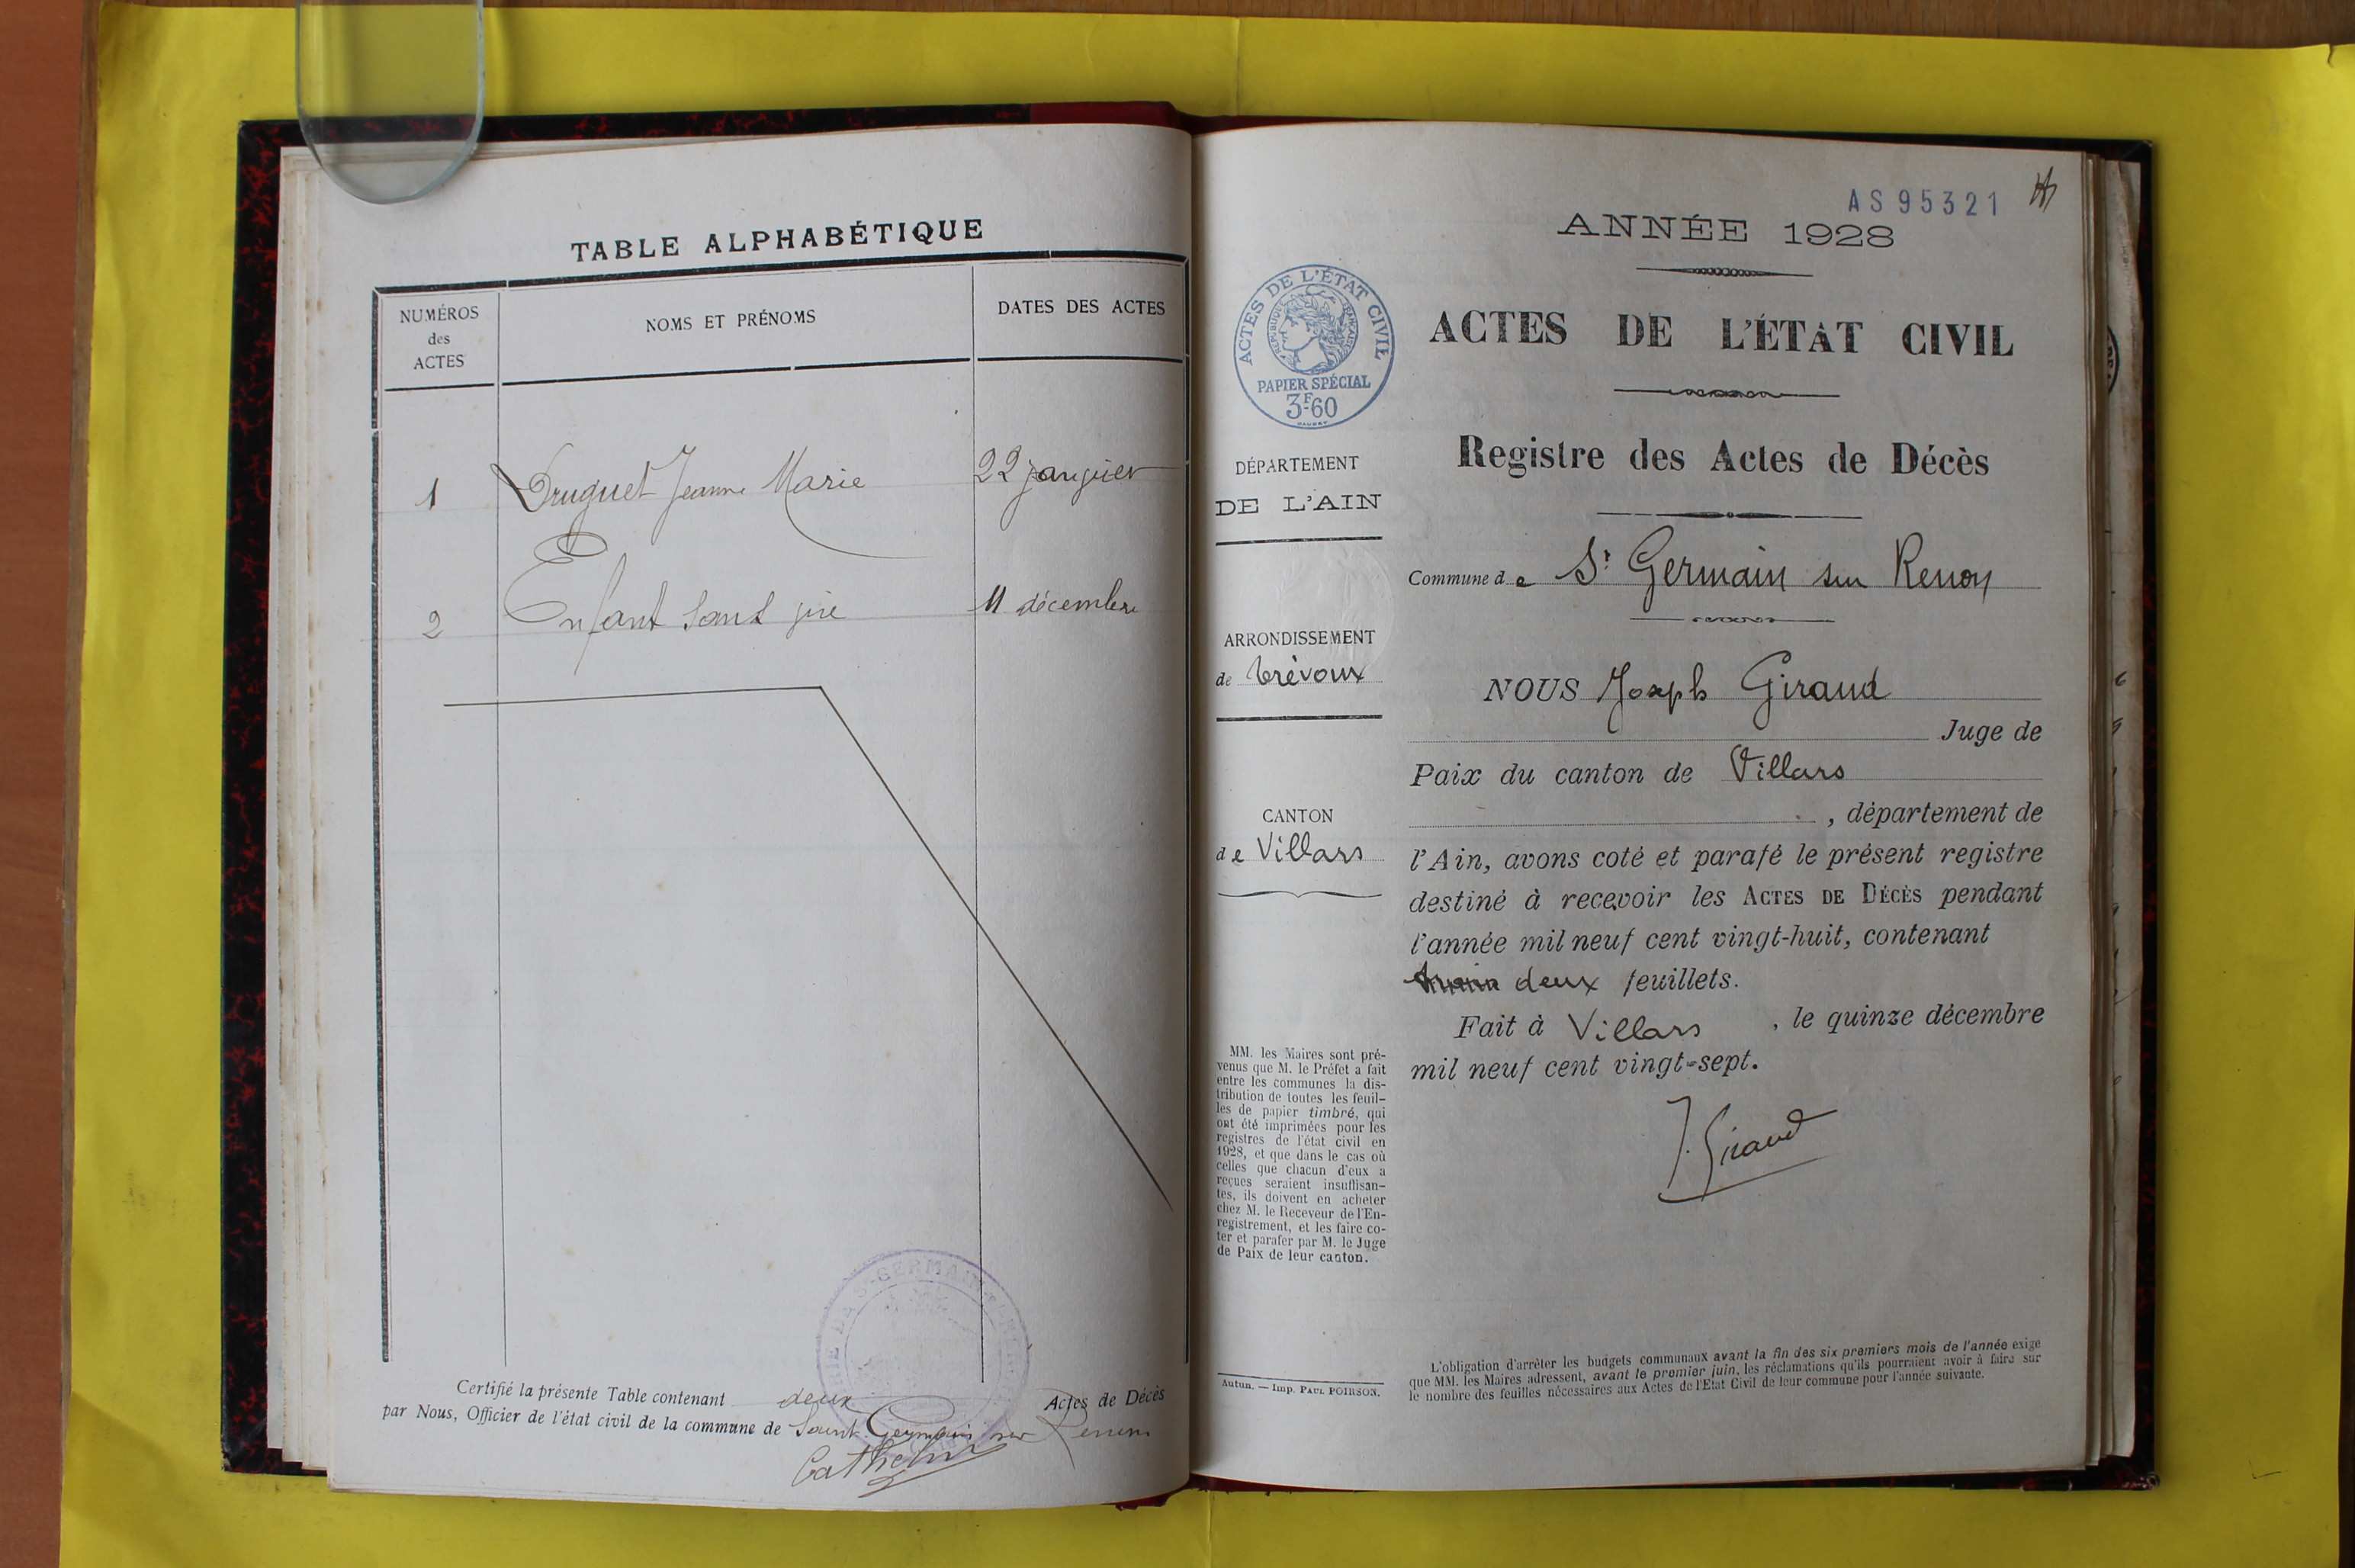 TABLE ALPHABÉTIQUE
NUMÉROS
des
ACTES
NOMS ET PRÉNOMS
DATES DES ACTES
1 Druguet Jeanne Marie 22 janvier
2 Enfant sans vie 11 décembre
Certifié la présente Table contenant deux Actes de Décès
par Nous, Officier de l'état civil de la commune de Saint Germain sur Renon
AS 95321
ANNÉE 1928
ACTES DE L'ÉTAT CIVIL
RÉPUBLIQUE FRANÇAISE
PAPIER SPÉCIAL
3F60
ACTES DE L'ÉTAT CIVIL
Registre des Actes de Décès
DÉPARTEMENT
DE L'AIN
Commune de St Germain sur Renon
ARRONDISSEMENT
de Trévoux
NOUS Joseph Giraud
Juge de
Paix du canton de Villars
, département de
CANTON
de Villars
l'Ain, avons coté et parafé le présent registre
destiné à recevoir les ACTES DE DÉCÈS pendant
l'année mil neuf cent vingt-huit, contenant
deux feuillets.
Fait à Villars , le quinze décembre
mil neuf cent vingt-sept.
J. Giraud
MM. les Maires sont pré-
venus que M. le Préfet a fait
entre les communes la dis-
tribution de toutes les feuil-
les de papier timbré, qui
ont été imprimées pour les
registres de l'état civil en
1928, et que dans le cas où
celles que chacun d'eux a
reçues seraient insuffisan-
tes, ils doivent en acheter
chez M. le Receveur de l'En-
registrement, et les faire co-
ter et parafer par M. le Juge
de Paix de leur canton.
Autun. — Imp. PAUL POIRSON.
L'obligation d'arrêter les budgets communaux avant la fin des six premiers mois de l'année exige
que MM. les Maires adressent, avant le premier juin, les réclamations qu'ils pourraient avoir à faire sur
le nombre des feuilles nécessaires aux Actes de l'Etat Civil de leur commune pour l'année suivante.